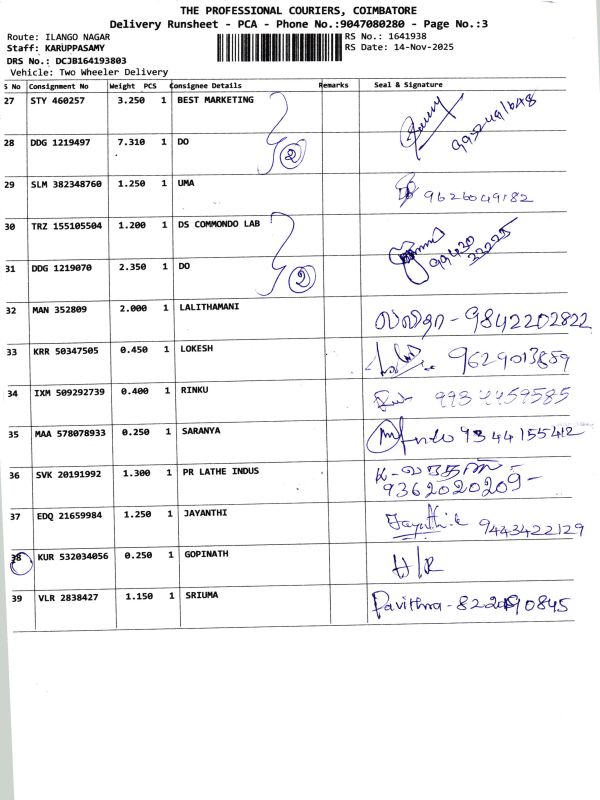 THE PROFESSIONAL COURIERS, COIMBATORE
Delivery Runsheet - PCA - Phone No.:9047080280 - Page No.:3
Route: ILANGO NAGAR RS No.: 1641938
Staff: KARUPPASAMY RS Date: 14-Nov-2025
DRS No.: DCJB164193803
Vehicle: Two Wheeler Delivery
S No Consignment No Weight PCS Consignee Details Remarks Seal & Signature
27 STY 460257 3.250 1 BEST MARKETING
28 DDG 1219497 7.310 1 DO 2
29 SLM 382348760 1.250 1 UMA 9626049182
30 TRZ 155105504 1.200 1 DS COMMONDO LAB 99430 22225
31 DDG 1219070 2.350 1 DO 2
32 MAN 352809 2.000 1 LALITHAMANI லலிதா - 9842202822
33 KRR 50347505 0.450 1 LOKESH
34 IXM 509292739 0.400 1 RINKU
35 MAA 578078933 0.250 1 SARANYA 9344155412
36 SVK 20191992 1.300 1 PR LATHE INDUS 9362020209-
37 EDQ 21659984 1.250 1 JAYANTHI Jayanthi 9443422129
38 KUR 532034056 0.250 1 GOPINATH H/R
39 VLR 2838427 1.150 1 SRIUMA Pavithra -